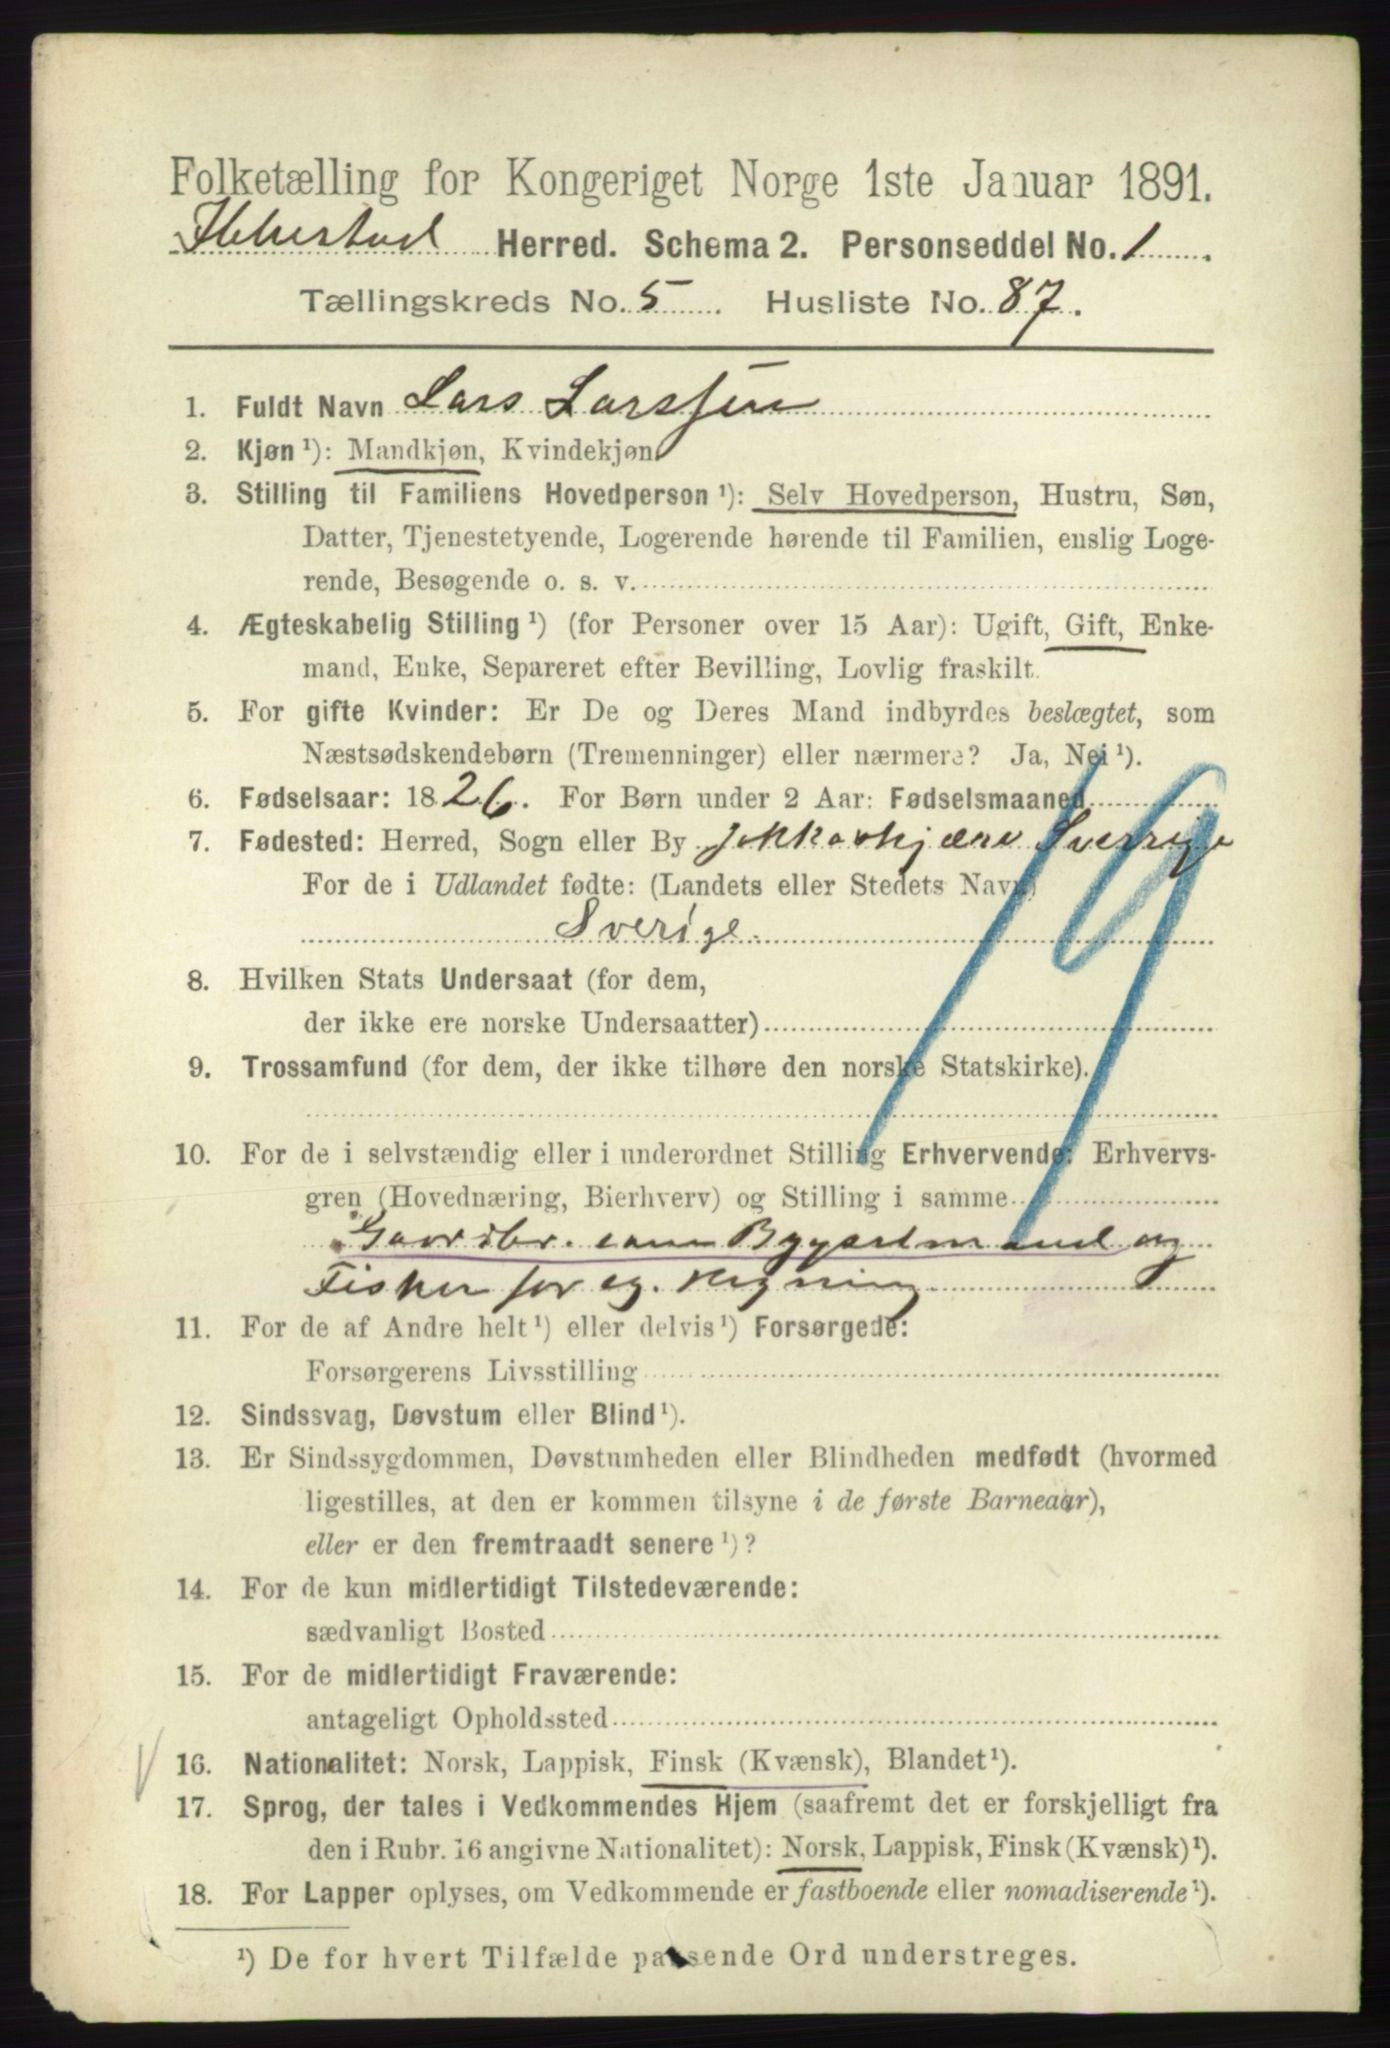 Folketælling for Kongeriget Norge 1ste Januar 1891.
Ibbestad Herred. Schema 2. Personseddel No. 1.
Tællingskreds No. 5. Husliste No. 87.
1. Fuldt Navn Lars Larssen
2. Kjøn ¹): Mandkjøn, Kvindekjøn
3. Stilling til Familiens Hovedperson ¹): Selv Hovedperson, Hustru, Søn,
Datter, Tjenestetyende, Logerende hørende til Familien, enslig Loge-
rende, Besøgende o. s. v.
4. Ægteskabelig Stilling ¹) (for Personer over 15 Aar): Ugift, Gift, Enke-
mand, Enke, Separeret efter Bevilling, Lovlig fraskilt.
5. For gifte Kvinder: Er De og Deres Mand indbyrdes beslægtet, som
Næstsødskendebørn (Tremenninger) eller nærmere? Ja, Nei ¹).
6. Fødselsaar: 1826. For Børn under 2 Aar: Fødselsmaaned
7. Fødested: Herred, Sogn eller By Jokkoskjærv Sverrige
For de i Udlandet fødte: (Landets eller Stedets Navn)
Sverige.
19
8. Hvilken Stats Undersaat (for dem,
der ikke ere norske Undersaatter)
9. Trossamfund (for dem, der ikke tilhøre den norske Statskirke).
10. For de i selvstændig eller i underordnet Stilling Erhvervende: Erhvervs-
gren (Hovednæring, Bierhverv) og Stilling i samme
Gaardbr. som Bygselmand og
Fisker for eg. Regning
11. For de af Andre helt ¹) eller delvis ¹) Forsørgede:
Forsørgerens Livsstilling
12. Sindssvag, Døvstum eller Blind ¹).
13. Er Sindssygdommen, Døvstumheden eller Blindheden medfødt (hvormed
ligestilles, at den er kommen tilsyne i de første Barneaar),
eller er den fremtraadt senere ¹)?
14. For de kun midlertidigt Tilstedeværende:
sædvanligt Bosted
15. For de midlertidigt Fraværende:
antageligt Opholdssted
16. Nationalitet: Norsk, Lappisk, Finsk (Kvænsk), Blandet ¹).
17. Sprog, der tales i Vedkommendes Hjem (saafremt det er forskjelligt fra
den i Rubr. 16 angivne Nationalitet): Norsk, Lappisk, Finsk (Kvænsk) ¹).
18. For Lapper oplyses, om Vedkommende er fastboende eller nomadiserende ¹).
¹) De for hvert Tilfælde passende Ord understreges.